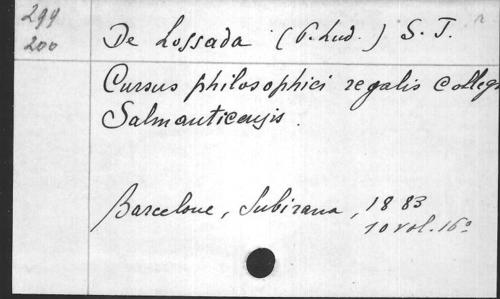 299
200
De Lossada (P. Lud.) S. J.
Cursus philosophici regalis Colleg
Salmanticensis.
Barcelone, Subirana, 1883
10 vol. 16º